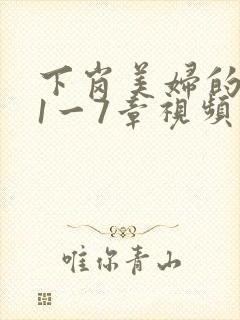 下岗美婦的
1一7章視頻
唯你青山